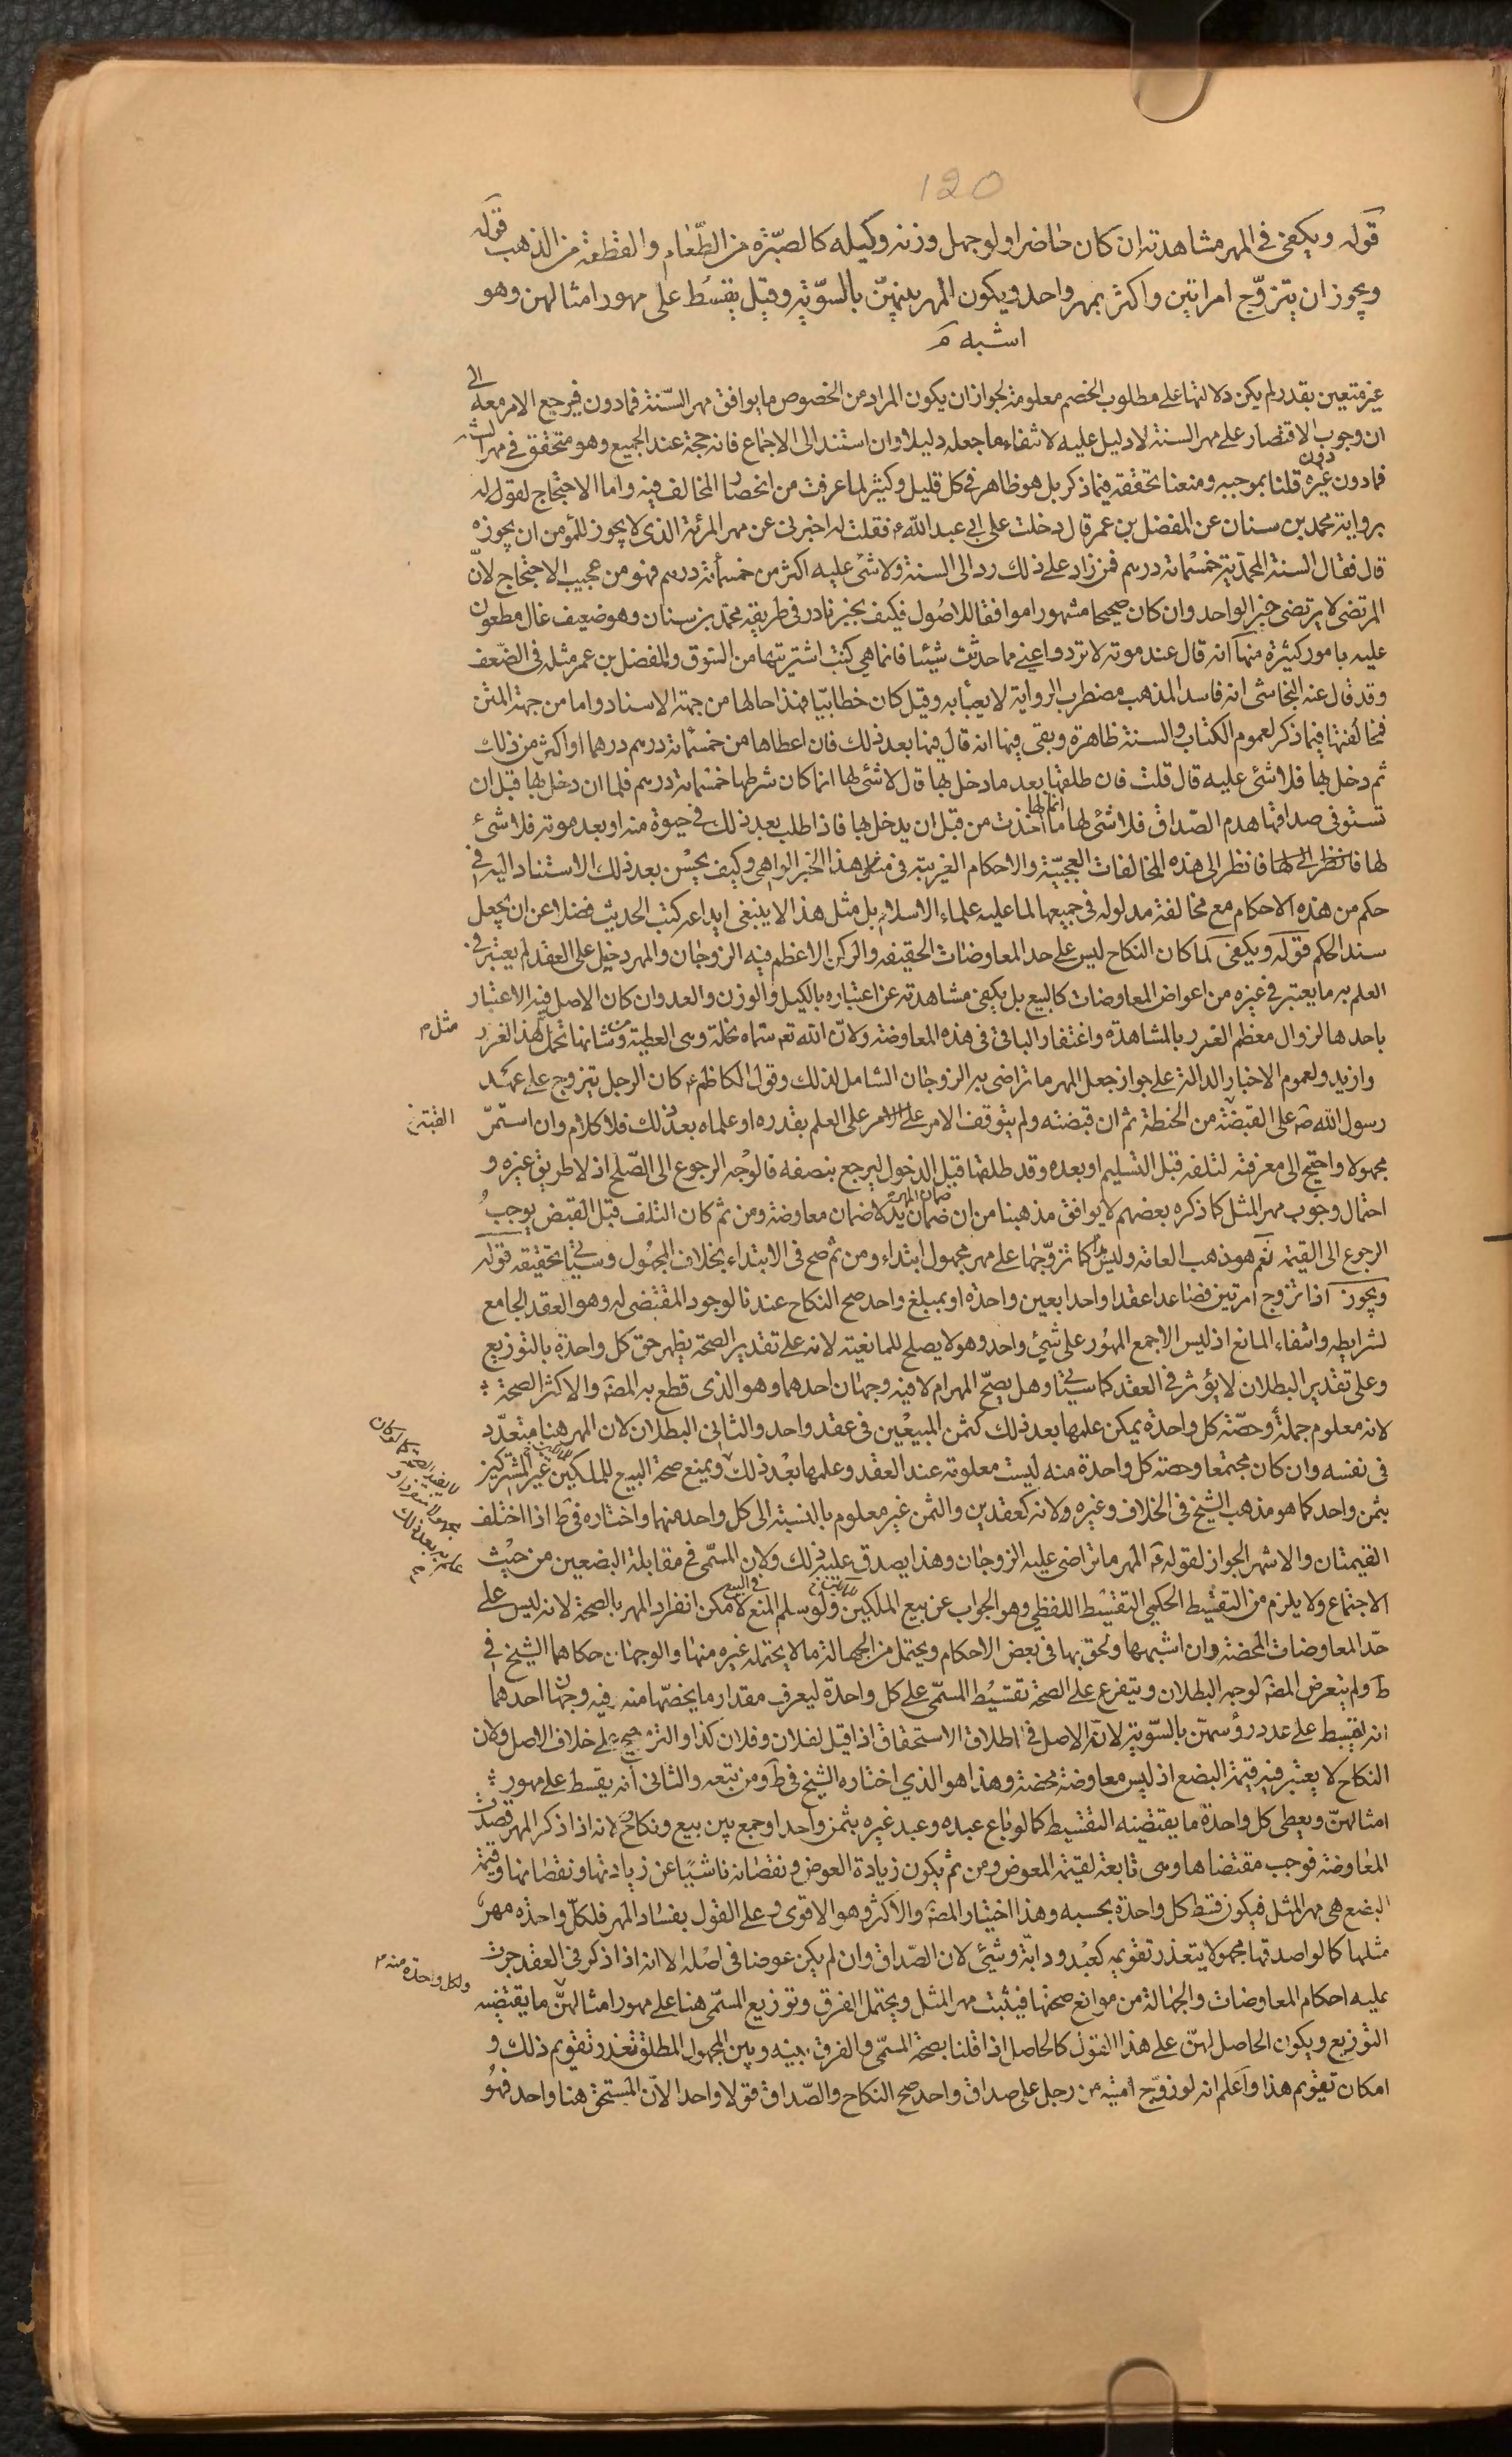 120
قوله ويكفى في المهر مشاهدته ان كان حاضرا ولو جهل وزنه وكيله كالصبّرة من الطّعام والقطعة من الذهب قوله
ويجوز ان يتزوّج امراتين واكثر بمهر واحد ويكون المهر بينهنّ بالسوّية وقيل يقسّط على مهور امثالهن وهو
اشبه م
غير متعين بقدر لم يكن دلالتها على مطلوب الخصم معلومة لجواز ان يكون المراد من الخصوص ما يوافق مهر السّنة فما دون فيرجع الامر معه الى
ان وجوب الاقتصار على مهر السنة لا دليل عليه لانتفاء ما جعله دليلا وان استند الى الاجماع فانه حجة عند الجميع وهو متحقق في مهر السنة
فما دون دون غيره قلنا بموجبه ومنعنا تحققه فيما ذكر بل هو ظاهر في كل قليل وكثير لما عرفت من انحصار المخالف فيه واما الاحتجاج لقوله
برواية محمد بن سنان عن المفضل بن عمر قال دخلت على ابي عبد الله ع فقلت له اخبرنى عن مهر المرئة الذى لا يجوز للمؤمن ان يجوزه
قال فقال السنة المحمدّية خمسمائة درهم فمن زاد على ذلك رد الى السنة ولا شئ عليه اكثر من خمسمأئة درهم فهو من عجيب الاحتجاج لانّ
المرتضى لا يرتضى خبر الواحد وان كان صحيحا مشهورا موافقا للاصُول فكيف بخبر نادر في طريقه محمّد بن سنان وهو ضعيف غال مطعون
عليه بامور كثيرة منها انه قال عند موته لا تردوا عني مما حدثت شيئا فانما هي كتب اشتريتها من السّوق والمفضل بن عمر مثله في الضّعف
وقد قال عنه النجاشى انه فاسد المذهب مضطرب الرواية لا يعبأ به وقيل كان خطابيّا فهذا حالها من جهة الاسناد واما من جهة المتن
فمخالفتها فيما ذكر لعموم الكتاب والسنة ظاهرة وبقى فيها انه قال فيها بعد ذلك فان اعطاها من خمسمائة درهم درهما او اكثر من ذلك
ثم دخل بها فلا شئ عليه قال قلت فان طلقها بعد ما دخل بها قال لا شئ لها انما كان شرطها خمسمائة درهم فلما ان دخل بها قبل ان
تستوفى صداقها هدم الصّداق فلا شئ لها انما لها ما اخذت من قبل ان يدخل بها فاذا طلب بعد ذلك في حيوة منه او بعد موته فلا شئ
لها فانظر الى لها فانظر الى هذه المخالفات العجيبّة والاحكام الغريبة في مثل هذا الخبر الواهى وكيف يحسُن بعد ذلك الاستناد اليه في
حكم من هذه الاحكام مع مخالفة مدلوله في جميعها لما عليه علماء الاسلام بل مثل هذا لا ينبغى ايداعه كتب الحديث فضلا عن ان يجعل
سند الحكم قوله ويكفى لما كان النكاح ليس على حد المعاوضات الحقيقه والركن الاعظم فيه الزوجان والمهر دخيل على العقد لم يعتبر في
العلم به ما يعتبر في غيره من اعواض المعاوضات كالبيع بل يكفى مشاهدته عن اعتباره بالكيل والوزن والعد وان كان الاصل فيه الاعتبار
باحدها لزوال معظم الغرر بالمشاهدة واغتفار الباقي في هذه المعاوضة ولانّ الله تع سماه نحلة وهى العطية ومن شانها تحمل هذا الغرر
مثل م
وازيد ولعموم الاخبار الدالة على جواز جعل المهر ما تراضى به الزوجان الشامل لذلك وقول الكاظم ع كان الرجل يتزوج على عهد
رسول الله ص على القبضة من الحنطة ثم ان قبضته ولم يتوقف الامر على الامر على العلم بقدره او علماه بعد ذلك فلا كلام وان استمرّ
مجهولا واحتيج الى معرفته لتلفه قبل التسليم او بعده وقد طلقها قبل الدخول ليرجع بنصفه فالوجه الرجوع الى الصّلح اذ لا طريق غيره و
احتمال وجوب مهر المثل كما ذكره بعضهم لا يوافق مذهبنا من ان ضمان المهر ضمان يد لا ضمان معاوضة ومن ثم كان التلف قبل القبض يوجبُ
الرجوع الى القيمة نعم هو مذهب العامة وليس هذا كما تزوّجها على مهر مجهول ابتداء ومن ثم صح في الابتداء بخلاف المجهُول وسيأتي تحقيقه قوله
ويجوز اذا تزوج امرتين فصاعدا عقدا واحدا بعين واحدة او بمبلغ واحد صح النكاح عندنا لوجود المقتضى له وهو العقد الجامع
لشرايطه وانتفاء المانع اذ ليس الا جمع المهُور على شئ واحد وهو لا يصلح للمانعية لانه على تقدير الصحة يظهر حق كل واحدة بالتوزيع
وعلى تقدير البطلان لا يؤثر في العقد كما سيأتي وهل يصحّ المهر ام لا فيه وجهان احدهما وهو الذى قطع به المصة والاكثر الصحة
لانه معلوم جملةً وحصّة كل واحدة يمكن علمها بعد ذلك كثمن المبيعين في عقد واحد والثانى البطلان لان المهر هنا متعدّد
في نفسه وان كان مجتمعا وحصة كل واحدة منه ليست معلومة عند العقد وعلمها بعْد ذلك ويمنع صحة البيع للملكين غير المشتركين
بثمن واحد كما هو مذهب الشيخ في الخلاف وغيره ولانه كعقدين والثمن غير معلوم بالنسبة الى كل واحد منهما واختاره في ط اذا اختلف
القيمتان والاشهر الجواز لقوله ع المهر ما تراضى عليه الزوجان وهذا يصدق عليه ذلك ولان المسمّى في مقابلة البضعين من حيْث
الاجتماع ولا يلزم من التقسيط الحكمي التقسيط اللفظي وهو الجواب عن بيع الملكين ولو سلم المنع في البيع لا مكن انفراد المهر بالصحة لانه ليس على
حدّ المعاوضات المحضة وان اشبهها ولحق بها في بعض الاحكام ويحتمل من الجهالة ما لا يحتمله غيره منها والوجهان حكاهما الشيخ في
ط ولم يتعرض المصة لوجه البطلان ويتفرع على الصحة تقسيُط المسمّى على كل واحدة ليعرف مقدار ما يخصّها منه وفيه وجهان احدهما
انه يقسط على عدد رؤسهنّ بالسّوية لانّ الاصل في اطلاق الاستحقاق اذا قيل لفلان وفلان كذا والترجيح على خلاف الاصل ولان
النكاح لا يعتبر فيه قيمة البضع اذ ليس معاوضة محضة وهذا هو الذي اختاره الشيخ في ط ومن تبعه والثانى انه يقسط على مهور
امثالهنّ ويعطى كل واحدة ما يقتضيه التقسيط كما لو باع عبده وعبد غيره بثمن واحد او جمع بين بيع ونكاح لانه اذا ذكر المهر قصدت
المعاوضة فوجب مقتضاها وهى تابعة لقيمة المعوض ومن ثم يكون زيادة العوض ونقصانه ناشيًا عن زيادتها ونقصانها وقيمة
البضع هى مهر المثل فيكون قسط كل واحدة بحسبه وهذا اختيار المصة والاكثر وهو الاقوى وعلى القول بفساد المهر فلكلّ واحدة مهر
مثلها كما لو اصدقها مجهولا يتعذر تقويمه كعبْد ودابّة وشئ لان الصّداق وان لم يكن عوضا في اصْله الا انه اذا ذكر في العقد جرت
عليه احكام المعاوضات والجهالة من موانع صحتها فيثبت مهر المثل ويحتمل الفرق وتوزيع المسمّى هنا على مهور امثالهنّ ما يقتضيه
ولكل واحدة منه م
التوزيع ويكون الحاصل لهنّ على هذا القول كالحاصل اذا قلنا بصحة المسمّى والفرق بينه وبين المجهول المطلق تعذر تقويم ذلك و
امكان تقويم هذا واعلم انه لو زوّج امتيه من رجل على صداق واحد صح النكاح والصّداق قولا واحدا لانّ المستحق هنا واحد فهُو